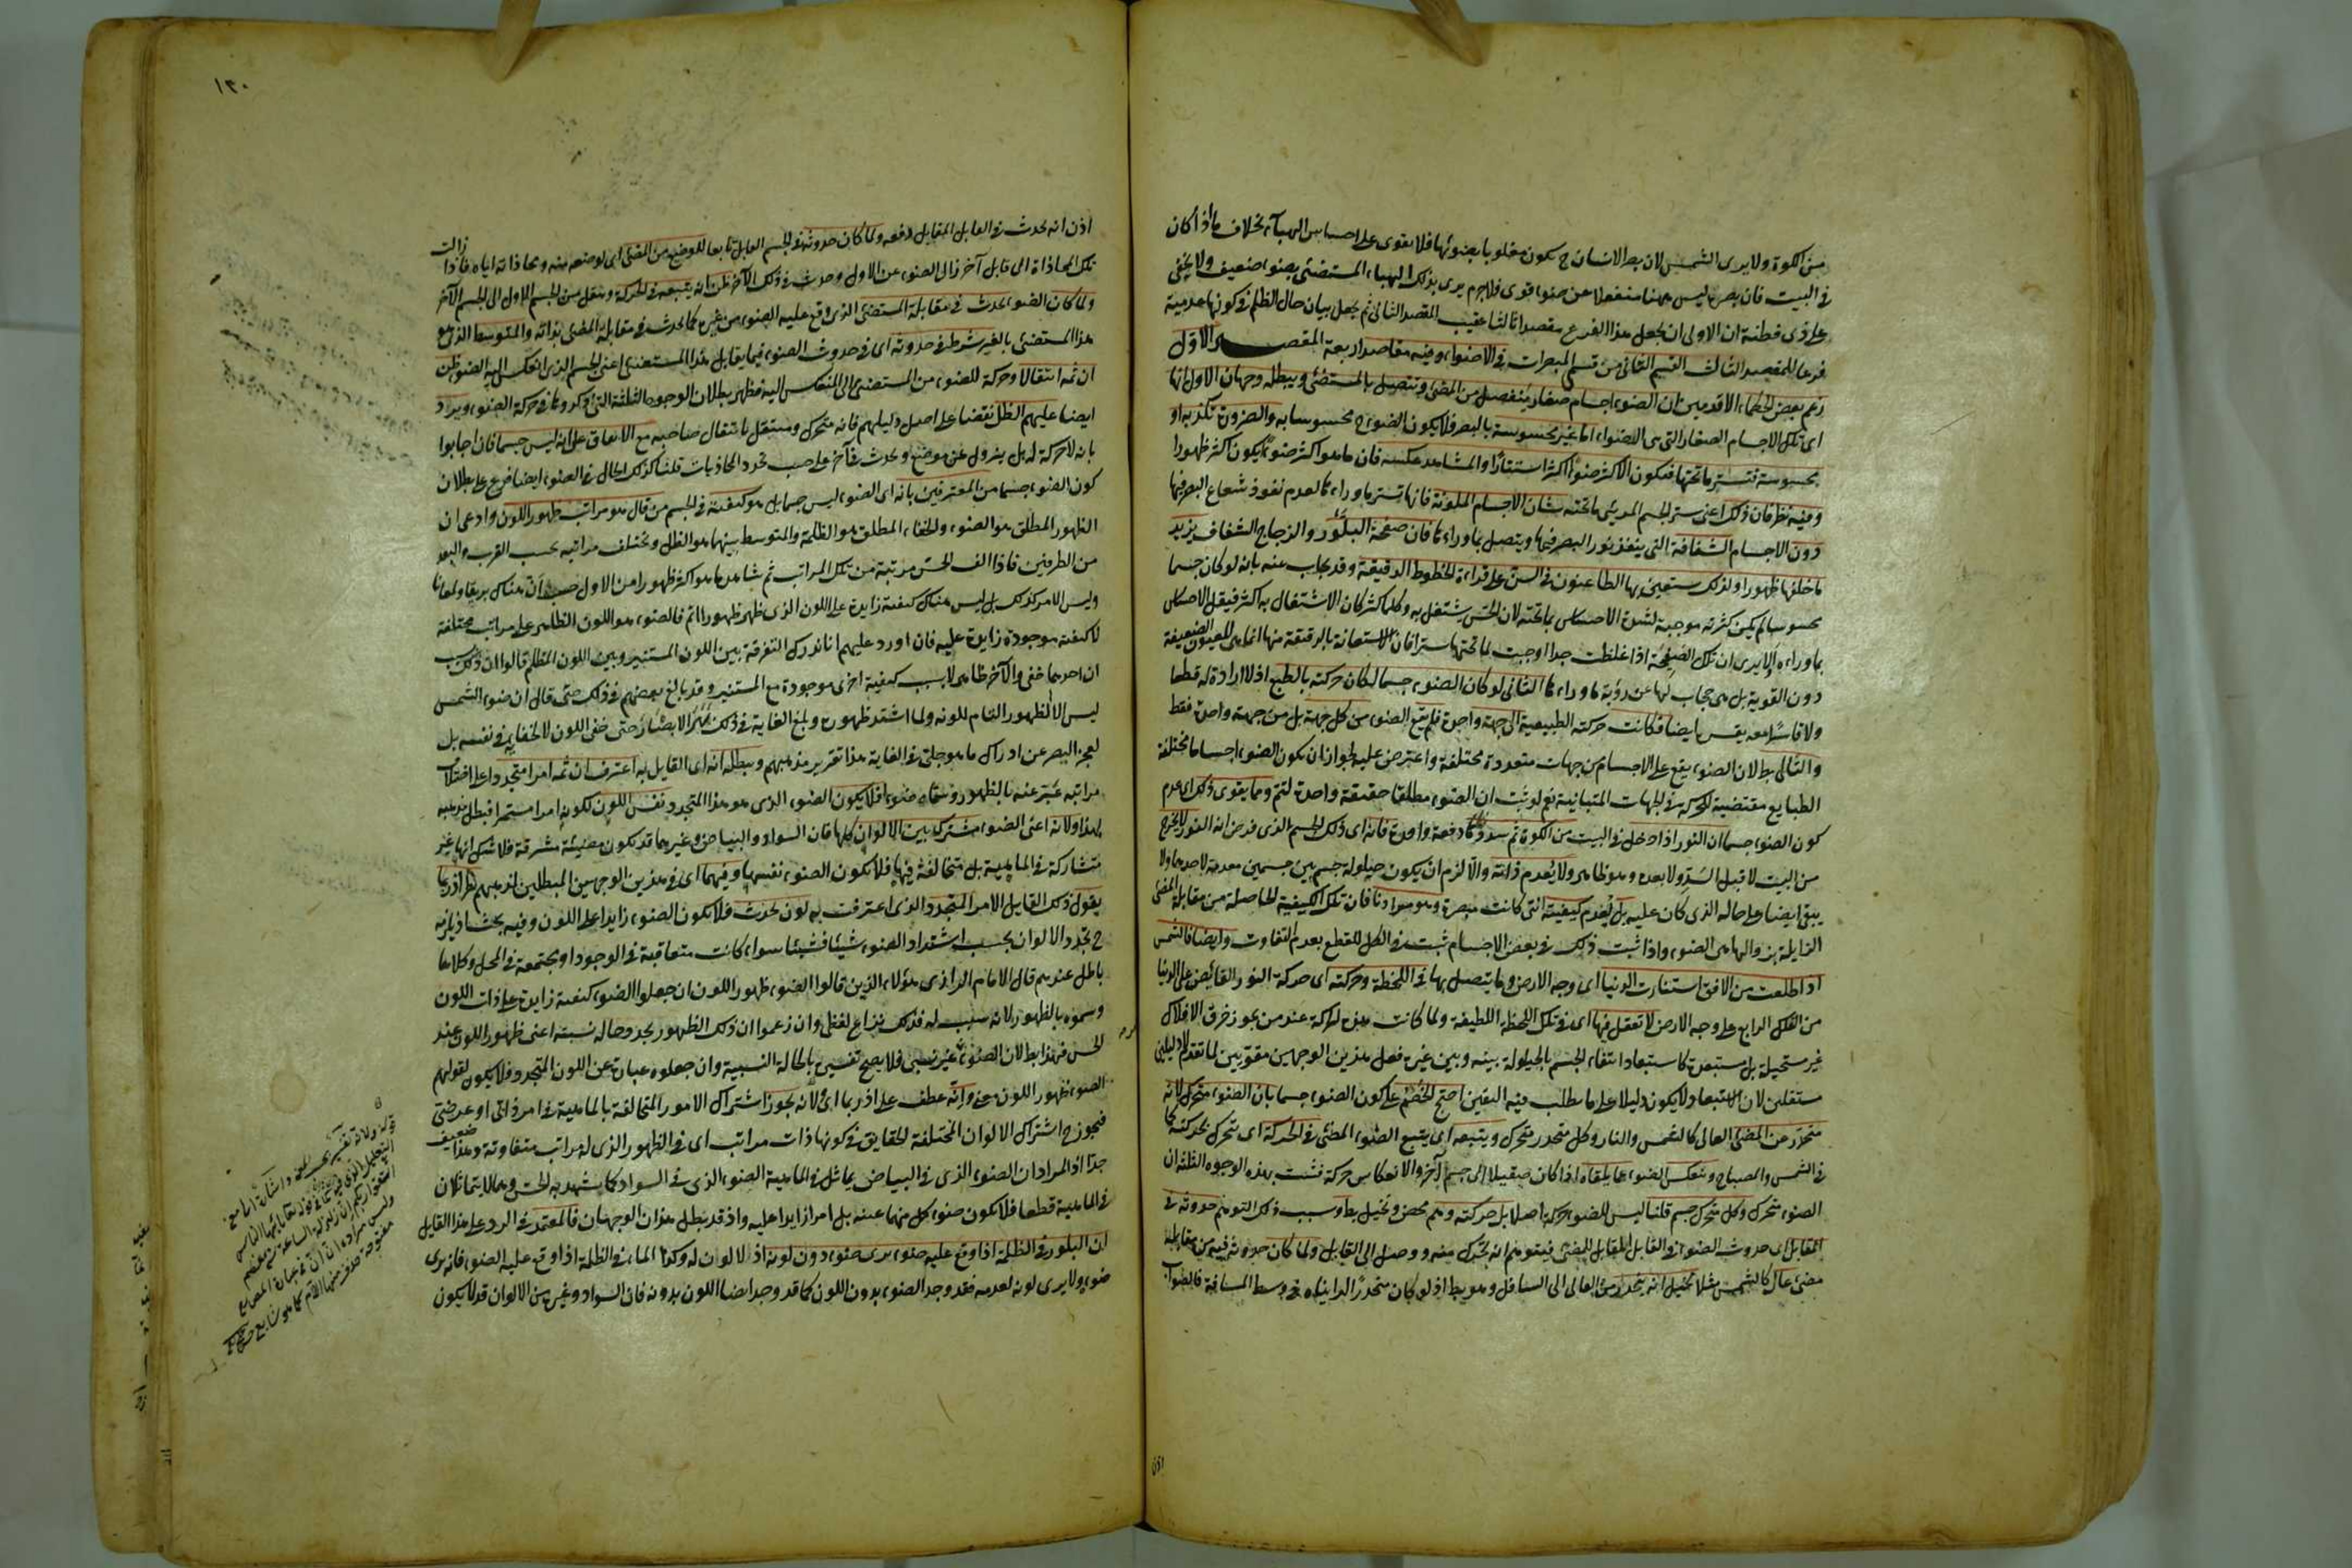 من الكوة ولا يرى الشمس لان بصر الانسان ح يكون مغلوبا بضوئها فلا يقوى على احساس الهباء بخلاف ما اذا كان
في البيت فان بصره ليس ههنا منفعلا عن ضوء قوى فلا جرم يرى بذلك الهباء المستضئ بضوء ضعيف ولا يخفى
على ذى فطنة ان الاولى ان يجعل هذا الفرع مقصدا ثالثا عقيب المقصد الثانى ثم يجعل بيان حال الظلمة في كونها عدمية
فرعا للمقصد الثالث القسم الثانى من قسمى المبصرات في الاضواء وفيه مقاصد اربعة المقصد الاول
زعم بعض الحكماء الاقدمين ان الضوء اجسام صغار ينفصل من المضئ ويتصل بالمستضئ ويبطله وجهان الاول انها
اى تلك الاجسام الصغار التى هى الاضواء اما غير محسوسة بالبصر فلا يكون الضوء ح محسوسا به والضرورة تكذبه او
محسوسة فتستر ما تحتها فيكون الاكثر ضوءا اكثر استتارا والمشاهد عكسه فان ما هو اكثر ضوءا يكون اكثر ظهورا
وفيه نظر فان ذلك اعنى ستر الجسم المرئى ما تحته شان الاجسام الملونة فانها تستر ما وراءها لعدم نفوذ شعاع البصر فيها
دون الاجسام الشفافة التى ينفذ نور البصر فيها ويتصل بما وراءها فان صفحة البلور والزجاج الشفاف يزيد
ما خلفها ظهورا ولذلك يستعين بها الطاعنون في السن على قراءة الخطوط الدقيقة وقد يجاب عنه بانه لو كان جسما
محسوسا لم يكن كثرته موجبة لشدة الاحساس بما تحته لان الحس يشتغل به وكلما كثر كان الاشتغال به اكثر فيقل الاحساس
بما وراءه الا يرى ان تلك الصفحة اذا غلظت جدا اوجبت لما تحتها سترا فان الاستعانة بالرقيقة منها انما هى للعيون الضعيفة
دون القوية بل هى حجاب لها عن رؤية ما وراءها الثانى لو كان الضوء جسما لكان حركته بالطبع اذ لا ارادة له قطعا
ولا قاسر معه يقسره ايضا فكانت حركته الطبيعية الى جهة واحدة فلم يقع الضوء من كل جهة بل من جهة واحدة فقط
والتالى بطلان الضوء يقع على الاجسام من جهات متعددة مختلفة واعترض عليه بجواز ان يكون الضوء اجساما مختلفة
الطبايع مقتضية للحركة في الجهات المتباينة نعم لو ثبت ان الضوء مطلقا حقيقة واحدة لتم ومما يقوى ذلك اى عدم
كون الضوء جسما ان النور اذا دخل في البيت من الكوة ثم سددناها دفعة واحدة فانه اى ذلك الجسم الذى فرض انه النور لا يخرج
من البيت لا قبل السد ولا بعده وهو ظاهر ولا يعدم ذاته والا لزم ان يكون حيلولة جسم بين جسمين معدمة لاحدهما ولا
يبقى ايضا على حاله الذى كان عليه بل يعدم كيفيته التى كانت مبصرة وهو مرادنا فان تلك الكيفية الحاصلة من مقابلة المضئ
الزايلة بزوالها هى الضوء واذا ثبت ذلك في بعض الاجسام ثبت في الكل للقطع بعدم التفاوت وايضا فالشمس
اذا طلعت من الافق استنارت الدنيا اى وجه الارض وما يتصل بها في اللحظة وحركته اى حركة النور الفايض على الدنيا
من الفلك الرابع على وجه الارض لا تعقل فيها اى في تلك اللحظة اللطيفة ولما كانت هذه الحركة عند من يجوز خرق الافلاك
غير مستحيلة بل مستبعدة كاستبعاد انتفاء الجسم بالحيلولة بينه وبين غيره فعل هذين الوجهين مقويين لما تقدم لا دليلين
مستقلين لان الاستبعاد لا يكون دليلا على ما يطلب فيه اليقين احتج الخصم على كون الضوء جسما بان الضوء متحرك لانه
متحدر عن المضئ العالى كالشمس والنار وكل متحدر متحرك ويتبعه اى يتبع الضوء المضئ في الحركة اى تحرك بحركته كما
في الشمس والمصباح وينعكس الضوء عما يلقاه اذا كان صقيلا الى جسم آخر والانعكاس حركة فثبت بهذه الوجوه الثلثة ان
الضوء متحرك وكل متحرك جسم قلنا ليس للضوء حركة اصلا بل حركته وهم محض وتخيل باطل وسبب ذلك التوهم حدوثه في
المقابل اى حدوث الضوء في القابل المقابل للمضئ فيتوهم انه تحرك منه ووصل الى القابل ولما كان حدوثه فيه من مقابلة
مضئ عال كالشمس مثلا تخيل انه ينحدر من العالى الى السافل وهو بط اذ لو كان منحدرا لرايناه في وسط المسافة فالصواب
اذن
١٣٠
اذن انه يحدث في القابل المقابل دفعه ولما كان حدوثه في الجسم القابل تابعا للوضع من المضئ اى لوضعه منه ومحاذاته اياه فاذا زالت
تلك المحاذاة الى قابل آخر زال الضوء عن الاول وحدث في ذلك الآخر ظن انه يتبعه في الحركة وينتقل من الجسم الاول الى الجسم الآخر
ولما كان الضوء يحدث في مقابلة المستضئ الذى وقع عليه الضوء من غيره كما يحدث في مقابلة المضئ بذاته والمتوسط الذى هو
هذا المستضئ بالغير شرط في حدوثه اى في حدوث الضوء فيما يقابل هذا المستضئ اعنى الجسم الذى انعكس اليه الضوء ظن
ان ثمه انتقالا وحركة للضوء من المستضئ الى المنعكس اليه فظهر بطلان الوجوه الثلثة التى ذكروها في حركة الضوء ويرد
ايضا عليهم الظل نقضا على اصل دليلهم فانه متحرك ومنتقل بانتقال صاحبه مع الاتفاق على انه ليس جسما فان اجابوا
بانه لا حركة له بل يزول عن موضع ويحدث في آخر على حسب تجدد المحاذيات قلنا كذلك الحال في الضوء ايضا فرع على بطلان
كون الضوء جسما من المعترفين بانه اى الضوء ليس جسما بل هو كيفية في الجسم من قال هو مراتب ظهور اللون وادعى ان
الظهور المطلق هو الضوء والخفاء المطلق هو الظلمة والمتوسط بينهما هو الظل وتختلف مراتبه بحسب القرب والبعد
من الطرفين فاذا الف الحس مرتبة من تلك المراتب ثم شاهد ما هو اكثر ظهورا من الاول حسب ان هناك بريقا ولمعانا
وليس الامر كذلك بل ليس هناك كيفية زايدة على اللون الذى ظهر ظهورا اتم فالضوء هو اللون الظاهر على مراتب مختلفة
لا كيفية موجودة زايدة عليه فان اورد عليهم انا ندرك التفرقة بين اللون المستنير وبين اللون المظلم قالوا ان ذلك بسبب
ان احدهما خفى والآخر ظاهر لا بسبب كيفية اخرى موجودة مع المستنير وقد بالغ بعضهم في ذلك حتى قال ان ضوء الشمس
ليس الا الظهور التام للونه ولما اشتد ظهوره وبلغ الغاية في ذلك بهر الابصار حتى خفى اللون لا لخفائه في نفسه بل
لعجز البصر عن ادراك ما هو جلى في الغاية هذا تقرير مذهبهم ويبطله انه اى القايل به اعترف ان ثمه امرا متجددا على اختلاف
مراتبه عبر عنه بالظهور وسماه ضوءا فلا يكون الضوء الذى هو هذا المتجدد نفس اللون لكونه امرا مستمرا فبطل مذهبه
بهذا ولانه اعنى الضوء مشترك بين الالوان كلها فان السواد والبياض وغيرهما قد تكون مضيئة مشرقة فلا شك انها غير
متشاركة في الماهية بل متخالفة فيها فلا يكون الضوء نفسها وفيهما اى في هذين الوجهين المبطلين لمذهبهم نظر اذ ربما
يقول ذلك القايل الامر المتجدد الذى اعترفت به لون يحدث فلا يكون الضوء زايدا على اللون وفيه بحث اذ يلزمه
ح تجدد الالوان بحسب اشتداد الضوء شيئا فشيئا سواء كانت متعاقبة في الوجود او مجتمعة في المحل وكلاهما
باطل عندهم قال الامام الرازى هؤلاء الذين قالوا الضوء ظهور اللون ان جعلوا الضوء كيفية زايدة على ذات اللون
وسموه بالظهور لانه سبب له فذلك نزاع لفظى وان زعموا ان ذلك الظهور تجدد حالة نسبية اعنى ظهور اللون عند
الحس فهذا بط لان الضوء غير نسبى فلا يصح تفسيره بالحالة النسبية وان جعلوه عبارة عن اللون المتجدد فلا يكون لقولهم
الضوء ظهور اللون معنى وانه عطف على اذ ربما اى ولانه يجوز اشتراك الامور المتخالفة بالماهية في امر ذاتى او عرضى
فيجوز ح اشتراك الالوان المختلفة الحقايق في كونها ذات مراتب اى في الظهور الذى له مراتب متفاوتة وهذا ضعيف
جدا اذ المراد ان الضوء الذى في البياض يماثل في الماهية الضوء الذى في السواد كما يشهد به الحس وهما لا يتماثلان
في الماهية قطعا فلا يكون ضوء كل منهما عينه بل امرا زايدا عليه واذ قد بطل هذان الوجهان فالمعتمد في الرد على هذا القايل
ان البلور في الظلمة اذا وقع عليه ضوء يرى ضوءه دون لونه اذ لا لون له وكذا الماء في الظلمة اذا وقع عليه الضوء فانه يرى
ضوءه ولا يرى لونه لعدمه فقد وجد الضوء بدون اللون كما قد وجد ايضا اللون بدونه فان السواد وغيره من الالوان قد لا يكون